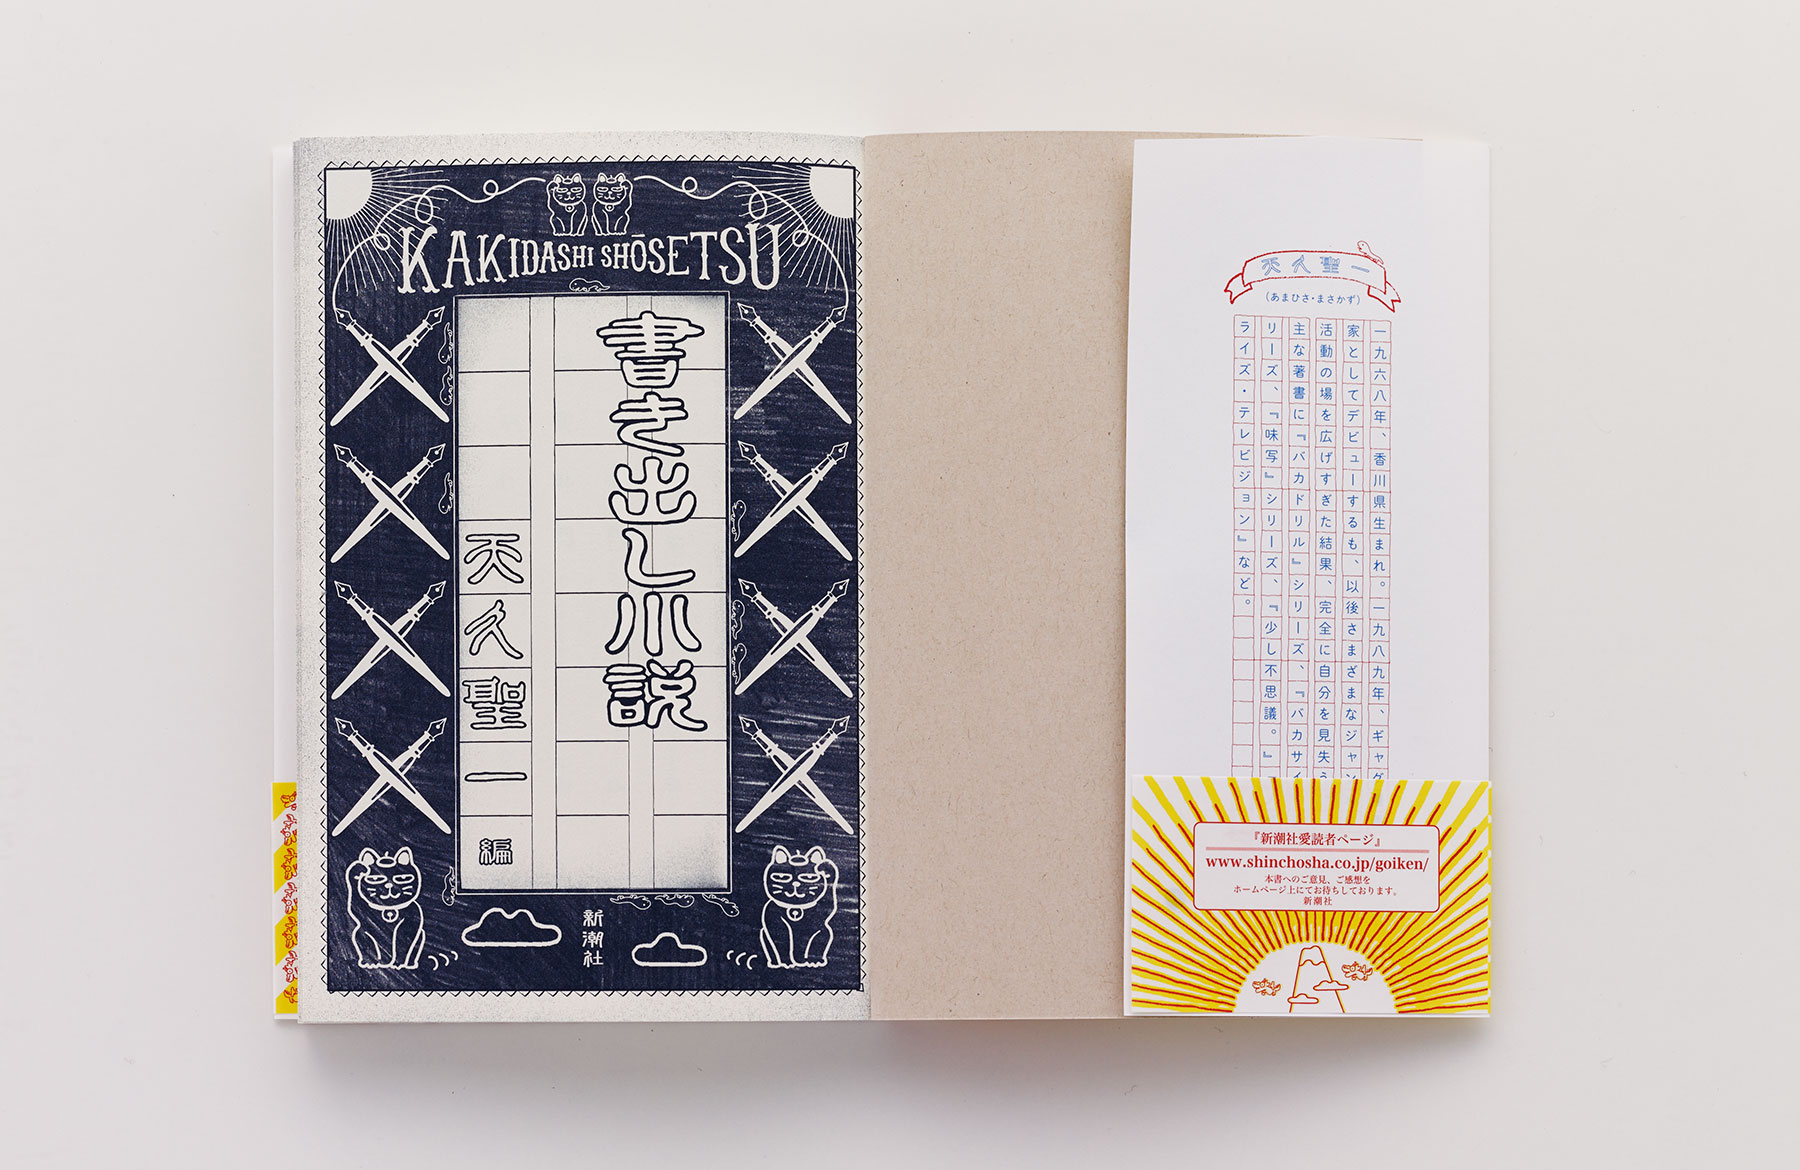 KAKIDASHI SHŌSETSU
書き出し小説
天久聖一 編
新潮社
天久聖一
(あまひさ・まさかず)
一九六八年、香川県生まれ。一九八九年、ギャグ
家としてデビューするも、以後さまざまなジャン
活動の場を広げすぎた結果、完全に自分を見失う
主な著書に『バカドリル』シリーズ、『バカサイ
リーズ、『味写』シリーズ、『少し不思議。』
ライズ・テレビジョン』など。
『新潮社愛読者ページ』
www.shinchosha.co.jp/goiken/
本書へのご意見、ご感想を
ホームページ上にてお待ちしております。
新潮社